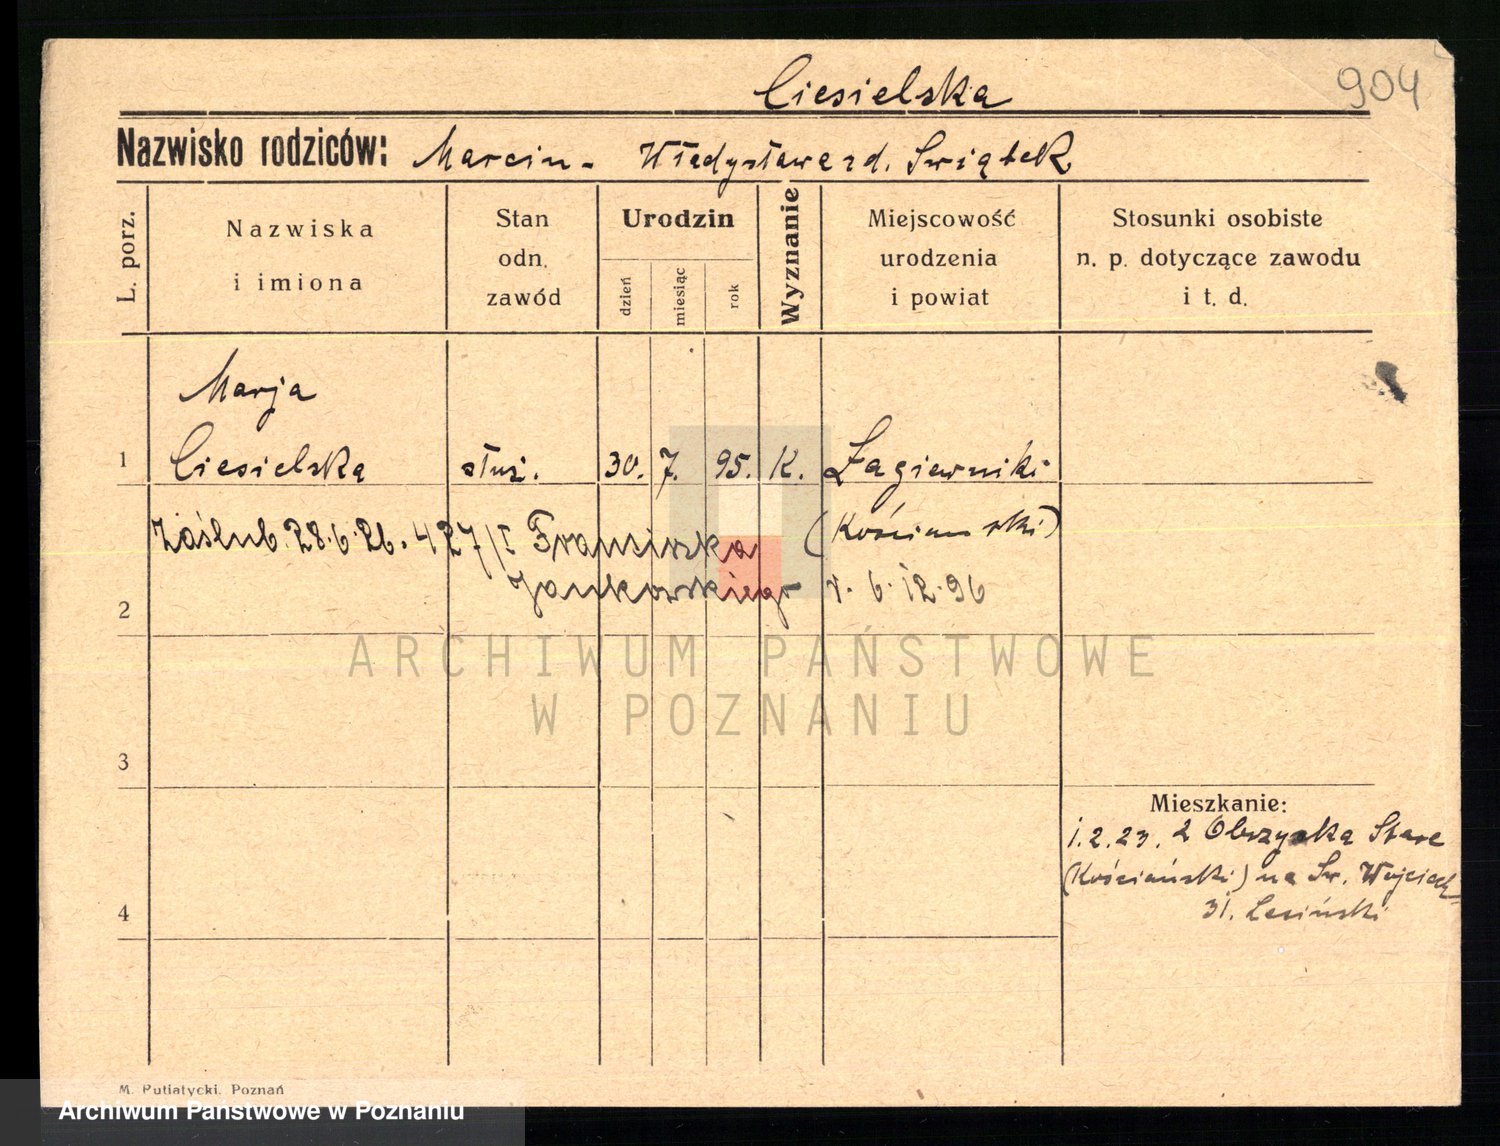 Ciesielska
904
Nazwisko rodziców: Marcin - Władysława zd. Swiątek
L. porz.
Nazwiska
i imiona
Stan
odn.
zawód
Urodzin
dzień
miesiąc
rok
Wyznanie
Miejscowość
urodzenia
i powiat
Stosunki osobiste
n. p. dotyczące zawodu
i t. d.
Marja
1 Ciesielska służ. 30. 7. 95. K. Łagiewniki
(Kościański)
Zaślub. 28.6.26. 427/I Franciszka
Jankowskiego r. 6.12.96
2
ARCHIWUM PAŃSTWOWE
W POZNANIU
3
Mieszkanie:
1.2.23. z Obrzycka Stare
(Kościański) na Św. Wojciech
31. Lesiński
4
M. Putiatycki, Poznań
Archiwum Państwowe w Poznaniu